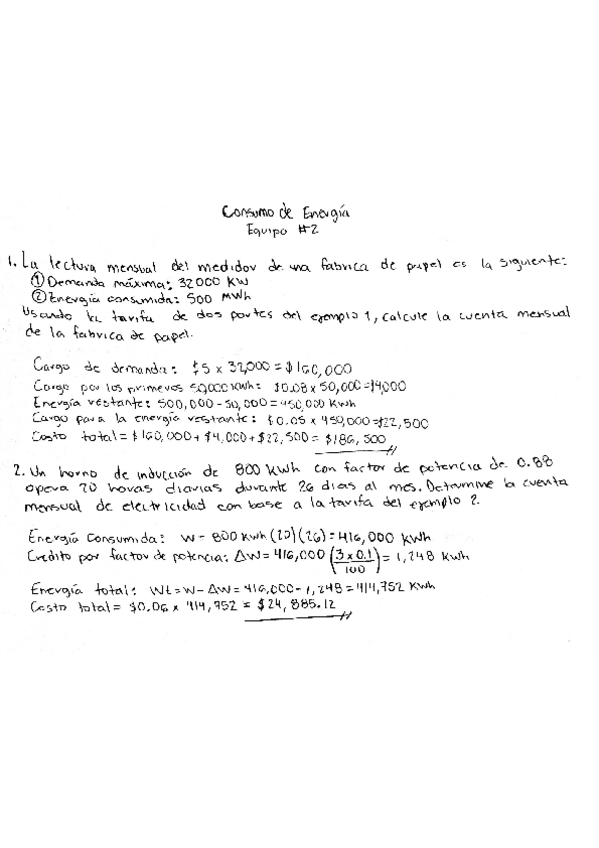 Consumo de Energía
Equipo #2
1. La lectura mensual del medidor de una fabrica de papel es la siguiente:
① Demanda máxima: 32000 KW
② Energía consumida: 500 MWh
Usando la tarifa de dos partes del ejemplo 1, calcule la cuenta mensual
de la fabrica de papel.
Cargo de demanda: $5 x 32,000 = $160,000
Cargo por los primeros 50,000 KWh: $0.08 x 50,000 = $4,000
Energía restante: 500,000 - 50,000 = 450,000 KWh
Cargo para la energía restante: $0.05 x 450,000 = $22,500
Costo total = $160,000 + $4,000 + $22,500 = $186,500
2. Un horno de inducción de 800 KWh con factor de potencia de 0.88
opera 20 horas diarias durante 26 dias al mes. Determine la cuenta
mensual de electricidad con base a la tarifa del ejemplo 2.
Energía Consumida: W = 800 KWh (20)(26) = 416,000 KWh
Credito por factor de potencia: ΔW = 416,000 (3 x 0.1 / 100) = 1,248 KWh
Energía total: Wt = W - ΔW = 416,000 - 1,248 = 414,752 KWh
Costo total = $0.06 x 414,752 = $24,885.12